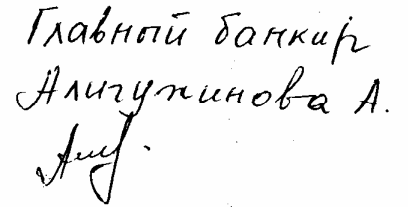 Главный банкир
Алигужинова А.